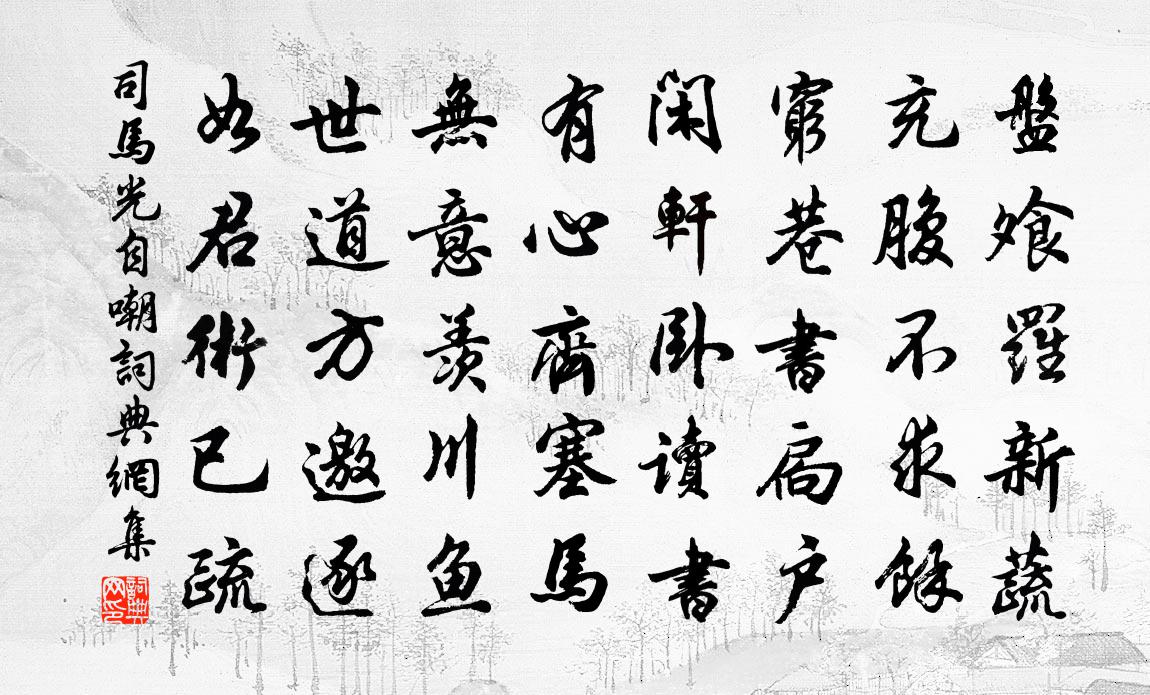 盤飱羅新蔬
充腹不求餘
窮巷書扃户
閑軒卧讀書
有心齊塞馬
無意羡川魚
世道方邀逐
如君術已疏
司馬光自嘲詞典網集
詞典